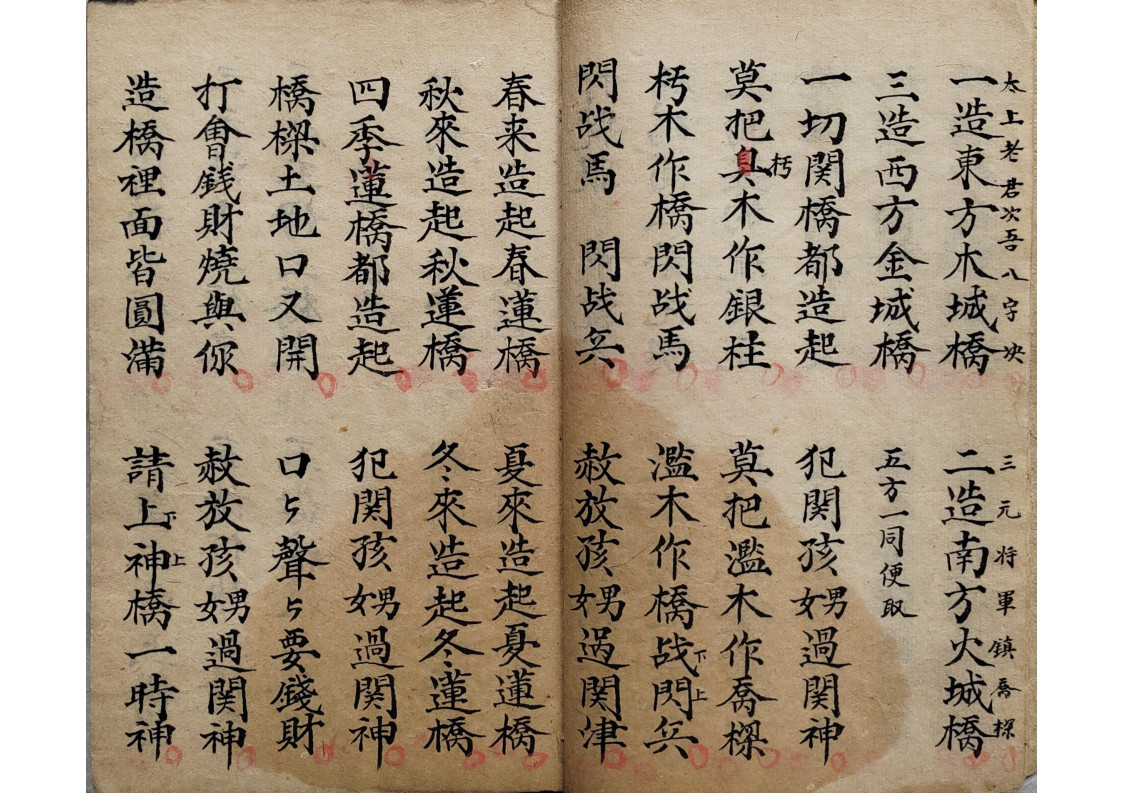 太上老君次吾八字块　三元将軍鎮喬樑
一造東方木城橋　二造南方火城橋
三造西方金城橋　五方一同便取
一切関橋都造起　犯関孩娚過関神
莫把臭朽木作銀柱　莫把濫木作喬樑
朽木作橋閃战馬　濫木作橋战下閃上兵
閃战馬　閃战兵　赦放孩娚過関津
春来造起春蓮橋　夏來造起夏蓮橋
秋來造起秋蓮橋　冬來造起冬蓮橋
四季蓮橋都造起　犯関孩娚過関神
橋樑土地口又開　口々聲々要錢財
打會錢財燒與你　赦放孩娚過関神
造橋裡面皆圓滿　請上下神上橋一時神